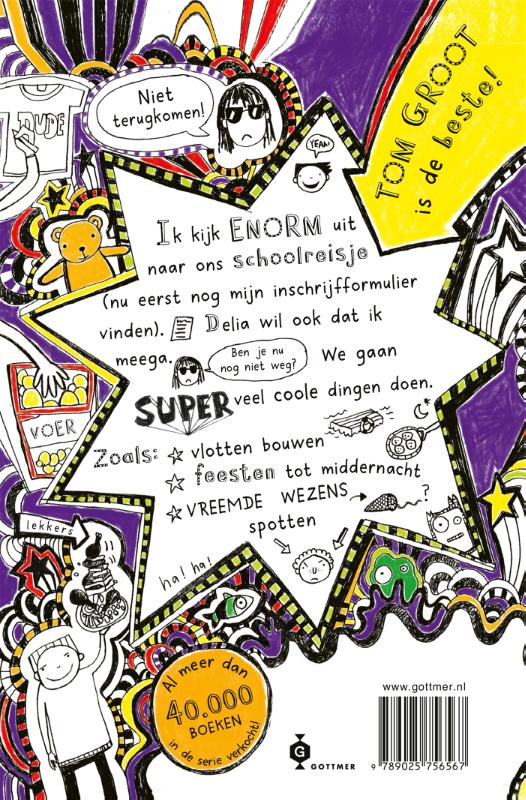 Niet
terugkomen!
DUDE
YEAH!
TOM GROOT
is de beste!
Ik kijk ENORM uit
naar ons schoolreisje
(nu eerst nog mijn inschrijfformulier
vinden). Delia wil ook dat ik
meega. Ben je nu
nog niet weg? We gaan
SUPER veel coole dingen doen.
Zoals: vlotten bouwen
feesten tot middernacht
VREEMDE WEZENS ?
spotten
VOER
lekkers
ha! ha!
Al meer dan
40.000
BOEKEN
in de serie verkocht!
www.gottmer.nl
G
GOTTMER
9 789025 756567